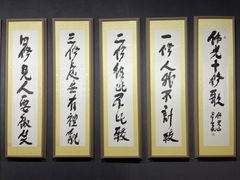 佛光十修歌
佛光山
一修人我不計較
二修彼此不比較
三修處世有禮貌
四修見人要微笑